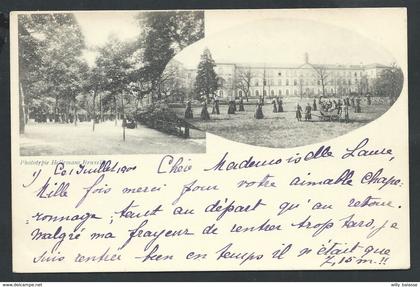 Phototypie Hellemans Bruxelles
1) Ce 1 Juillet 1900 Chère Mademoiselle Laure,
Mille fois merci pour votre aimable chape-
ronnage; tant au départ qu'au retour.
Malgré ma frayeur de rentrer trop tard, je
suis rentrée bien en temps il n'était que
7,15 m.!!
www.delcampe.net
willy.balaine